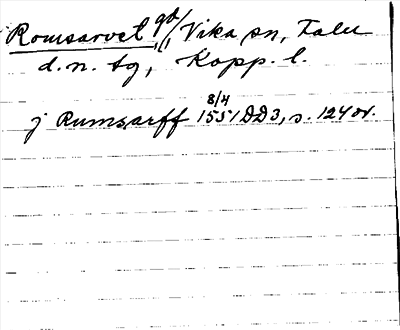 Romsarvet, gd, Vika sn, Falu
d.n. tg, Kopp. l.
j Rumsarff 8/4 1551 DD3, s. 124 or.